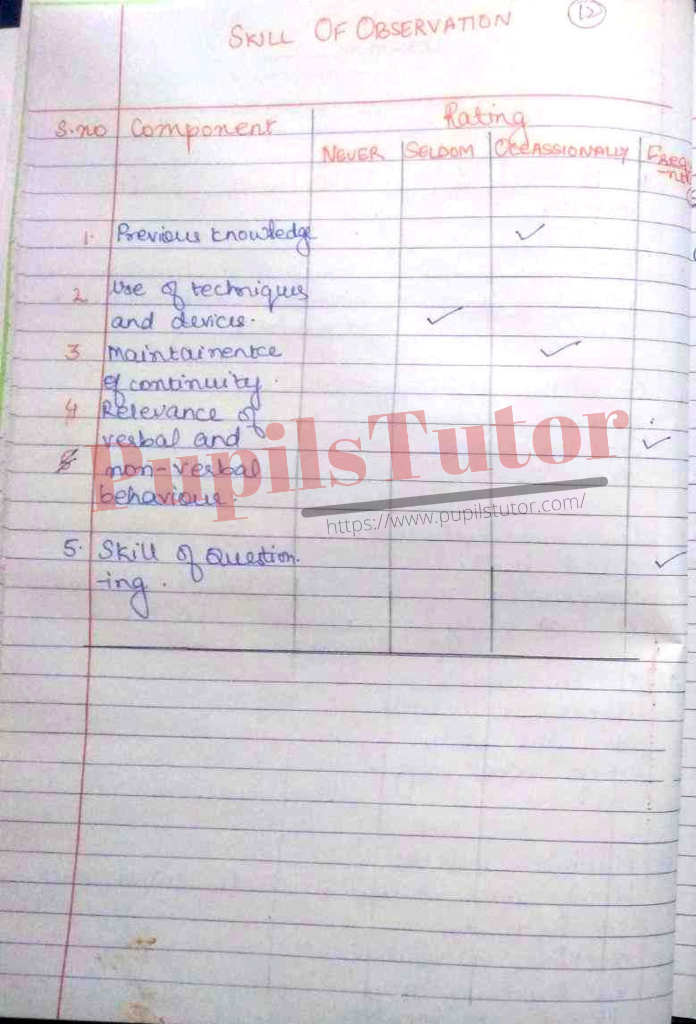 12
SKILL OF OBSERVATION
S.no Component Rating
NEVER SELDOM OCCASSIONALLY Freq
1. Previous knowledge ✓
2 Use of techniques
and devices. ✓
3 Maintainentce ✓
of continuity.
4 Relevance of
verbal and ✓
non-verbal
behaviour.
PupilsTutor
https://www.pupilstutor.com/
5. Skill of Question. ✓
-ing.